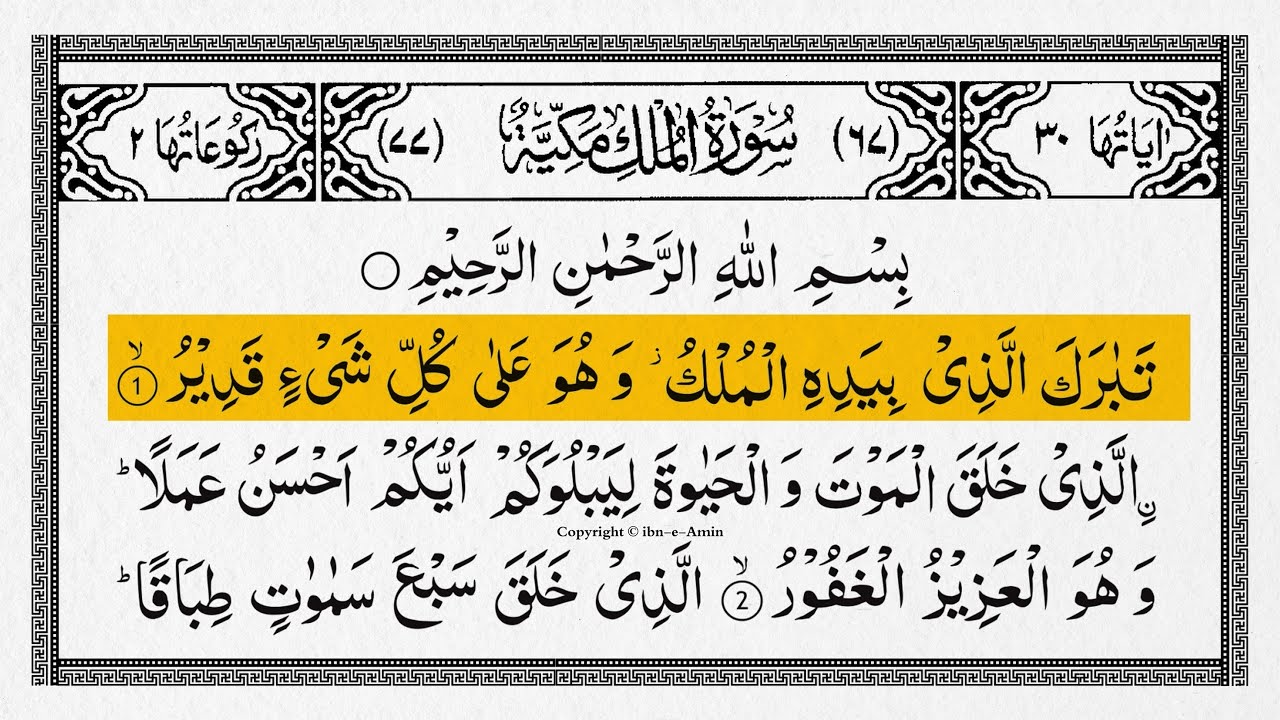 اٰيَاتُهَا ٣٠ (٦٧) سُوْرَةُ الْمُلْكِ مَكِّيَّةٌ (٧٧) رُكُوْعَاتُهَا ٢
بِسْمِ اللّٰهِ الرَّحْمٰنِ الرَّحِيْمِ ○
تَبٰرَكَ الَّذِىْ بِيَدِهِ الْمُلْكُ ز وَ هُوَ عَلٰى كُلِّ شَىْءٍ قَدِيْرُ ۙ 1
ۨالَّذِىْ خَلَقَ الْمَوْتَ وَ الْحَيٰوةَ لِيَبْلُوَكُمْ اَيُّكُمْ اَحْسَنُ عَمَلًا ؕ
Copyright © ibn-e-Amin
وَ هُوَ الْعَزِيْزُ الْغَفُوْرُ ۙ 2 الَّذِىْ خَلَقَ سَبْعَ سَمٰوٰتٍ طِبَاقًا ؕ